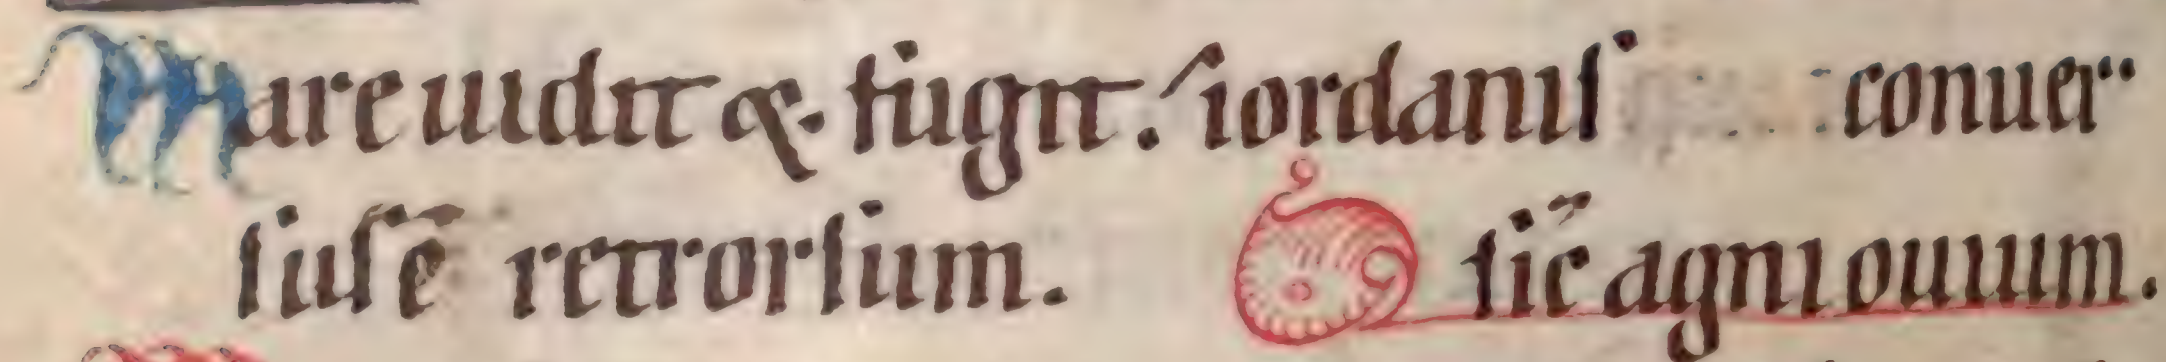 Mare uidit & fugit: iordanis conuer
sus ē retrorsum. sic̄ agni ouium.